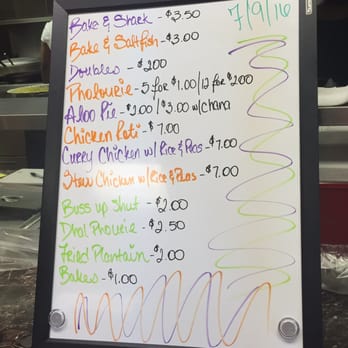 7/9/16
Bake & Shark - $3.50
Bake & Saltfish - $3.00
Doubles - $2.00
Pholourie - 5 for $1.00/12 for $2.00
Aloo Pie - $2.00/$3.00 w/chana
Chicken Roti - $7.00
Curry Chicken w/ Rice & Peas - $7.00
Stew Chicken w/ Rice & Peas - $7.00
Buss up Shut - $2.00
Dhal Phourie - $2.50
Fried Plantain - $2.00
Bakes - $1.00